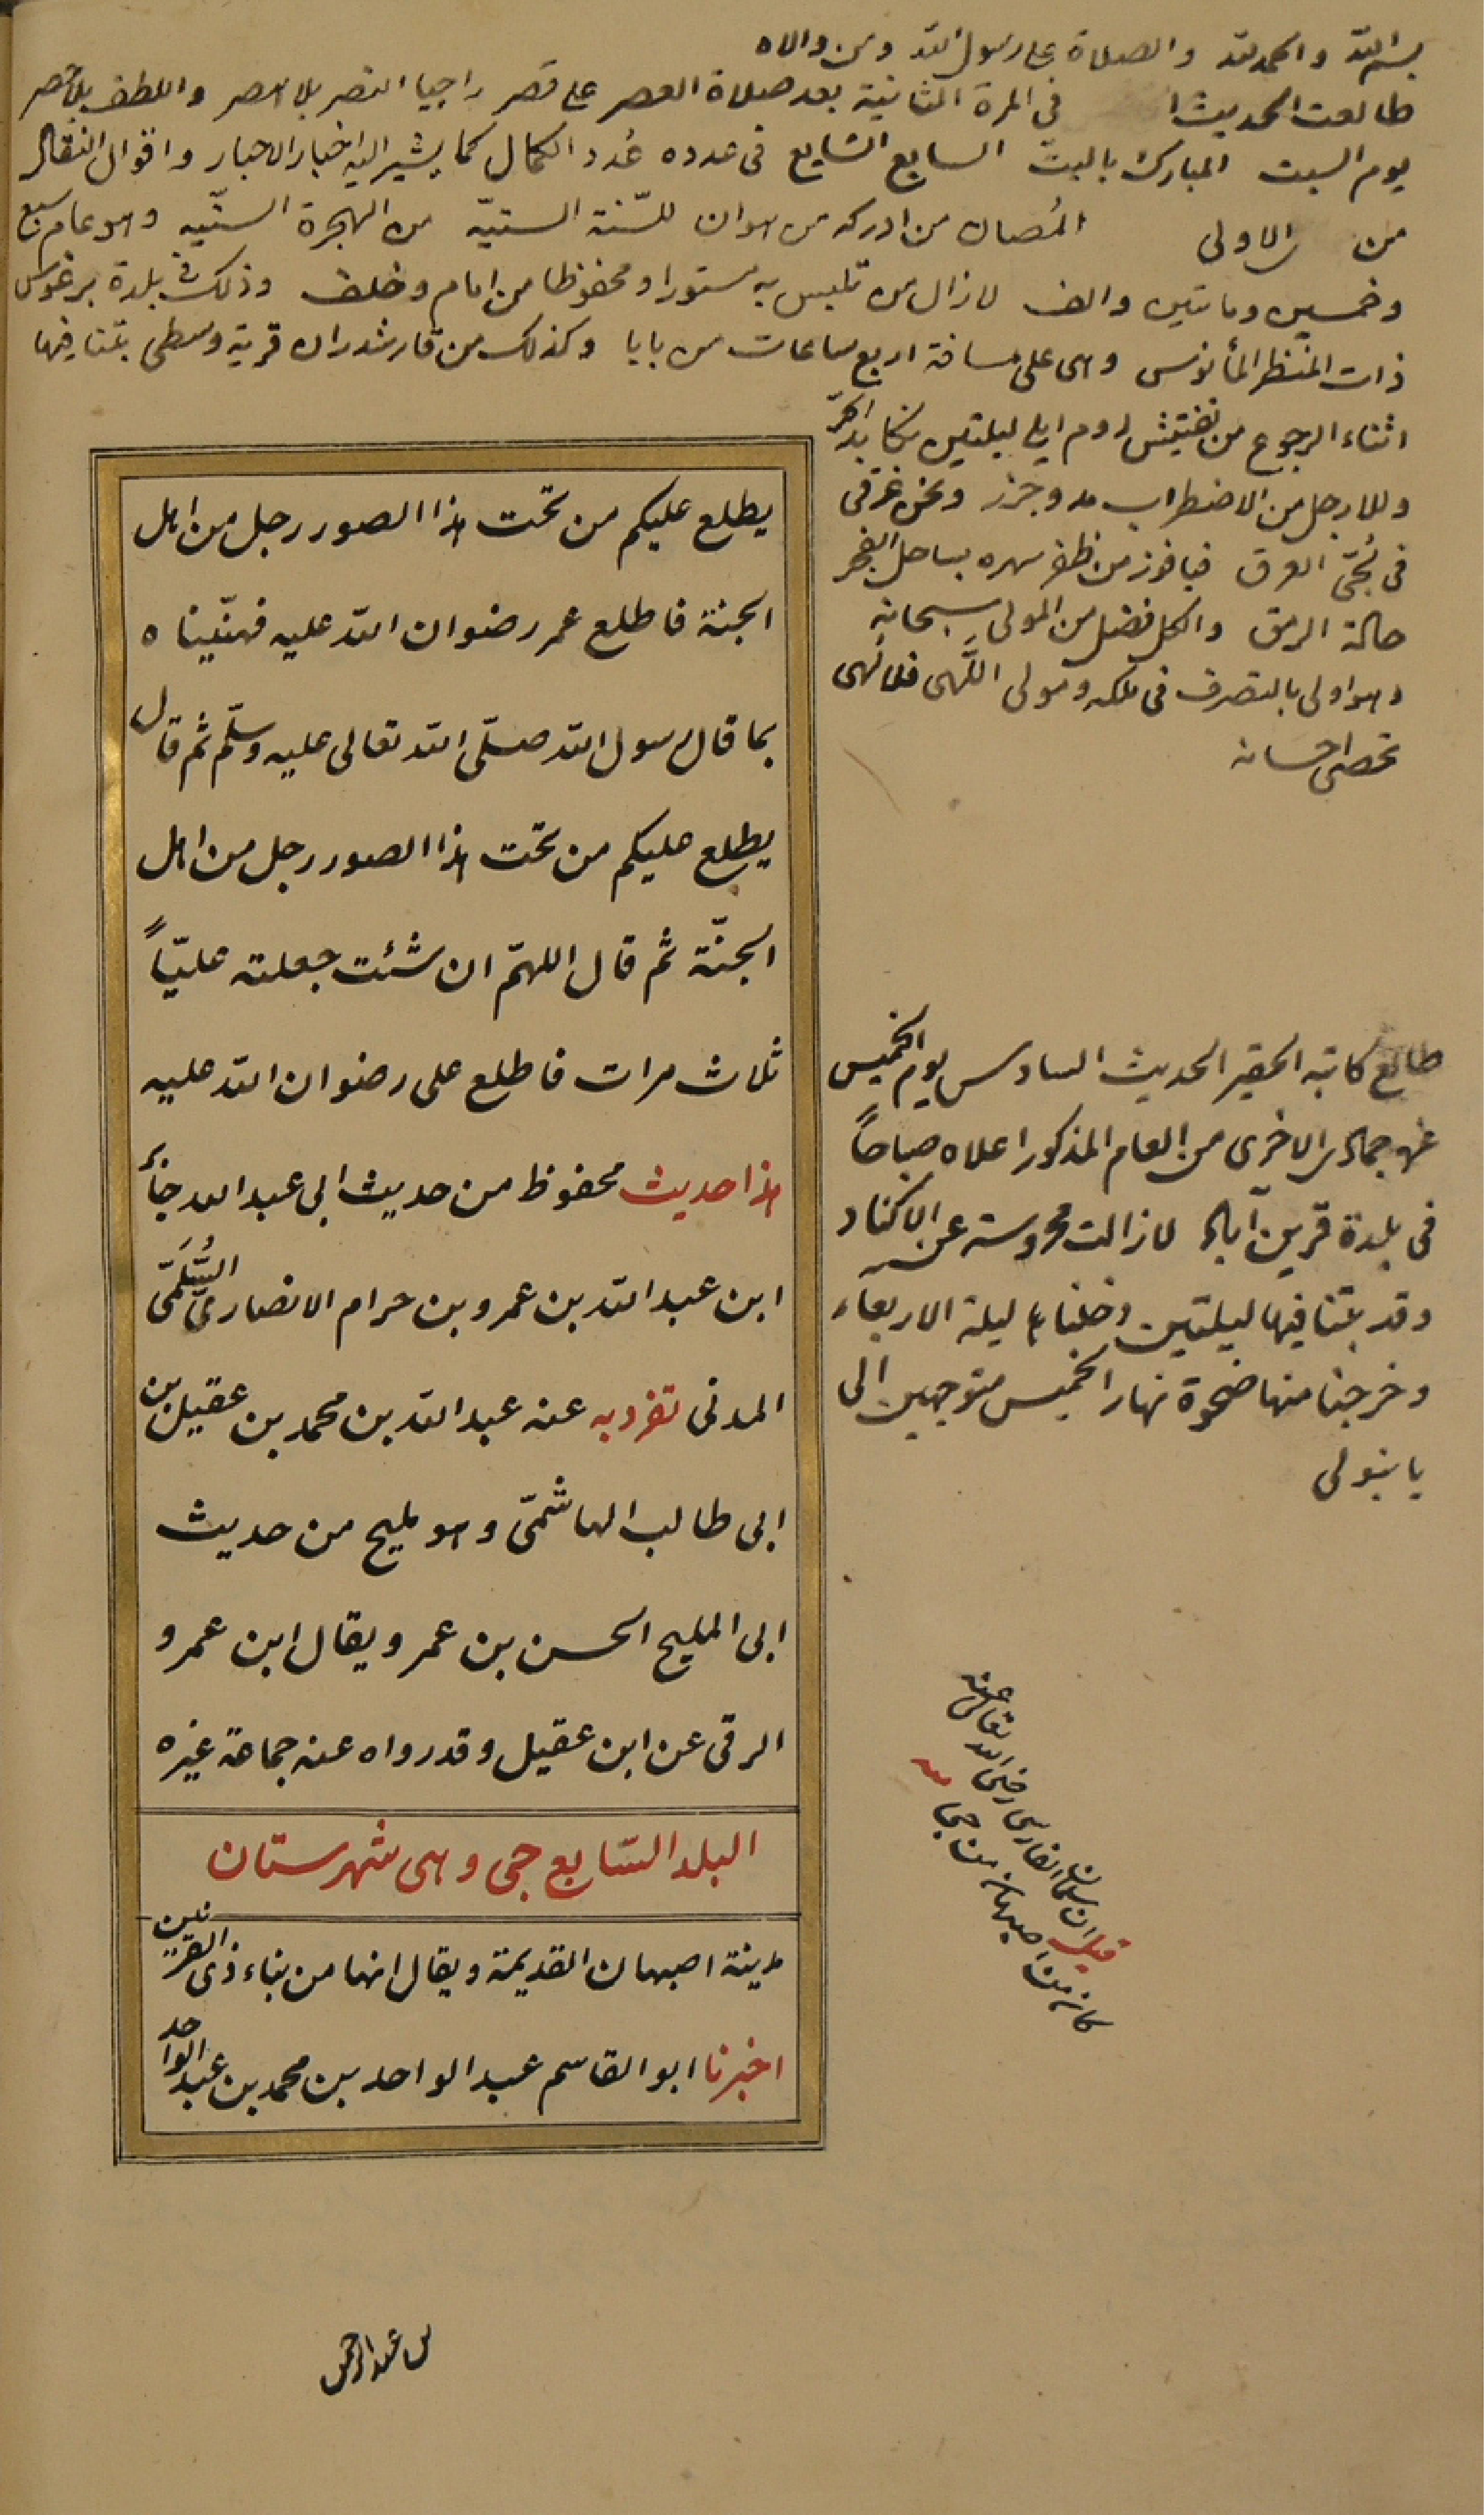 بسم الله والحمد لله والصلاة على رسول الله ومن والاه
طالعت الحديث فى المرة الثانية بعد صلاة العصر على قصر راجيا النصر بلا اصر واللطف بلا حصر
يوم السبت المبارك بالبت السابع الشايع فى عدده عُدد الكمال كما يشير اليه اخبار الاحبار واقوال النقال
من الاولى المُصان من ادركه من هوان للسّنة السنيّه من الهجرة السنّيه وهو عام سبع
وخمسين ومائتين والف لا زال من تلبس به مستورا ومحفوظا من امام وخلف وذلك فى بلدة برغوس
ذات المنظر المأنوس وهى على مسافة اربع ساعات من بابا وكذلك من قارشدران قرية وسطى بتنا فيها
اثناء الرجوع من تفتيش روم ايلى ليلتين نكابد الحرّ
وللارجل من الاضطراب مد وجزر ونحن غرقى
فى لُجّى العرق فيا فوز من ظفر سهره بساحل الفجر
حالة الرمق والكل فضل من المولى سبحانه
وهو اولى بالتصرف فى ملكه ومولى اللُّهى فلا نهى
تحصى احسانه
يطلع عليكم من تحت هذا الصور رجل من اهل
الجنة فاطلع عمر رضوان الله عليه فهنّيناه
بما قال رسول الله صلّى الله تعالى عليه وسلّم ثم قال
يطلع عليكم من تحت هذا الصور رجل من اهل
الجنّة ثم قال اللهمّ ان شئت جعلته عليّاً
ثلاث مرات فاطلع على رضوان الله عليه
هذا حديث محفوظ من حديث ابى عبد الله جابر
ابن عبد الله بن عمرو بن حرام الانصارىّ السُّلَمّى
المدنى تفرد به عنه عبد الله بن محمد بن عقيل بن
ابى طالب الهاشمّى وهو مليح من حديث
ابى المليح الحسن بن عمر ويقال ابن عمرو
الرقى عن ابن عقيل وقد رواه عنه جماعة غيره
البلد السّابع جى وهى شهرستان
مدينة اصبهان القديمة ويقال انها من بناء ذى القرنين
اخبرنا ابو القاسم عبد الواحد بن محمد بن عبد الواحد
طالع كاتبه الحقير الحديث السادس يوم الخميس
غرة جمادى الاخرى من العام المذكور اعلاه صباحاً
فى بلدة قرين آباد لا زالت محروسة عن الاكناد
وقد بتنا فيها ليلتين دخلناها ليلة الاربعاء
وخرجنا منها ضحوة نهار الخميس متوجهين الى
يانبولى
قيل ان سلمان الفارسى رضى الله تعالى عنه
كان من اصبهان من جى
بن عبد الرحمن